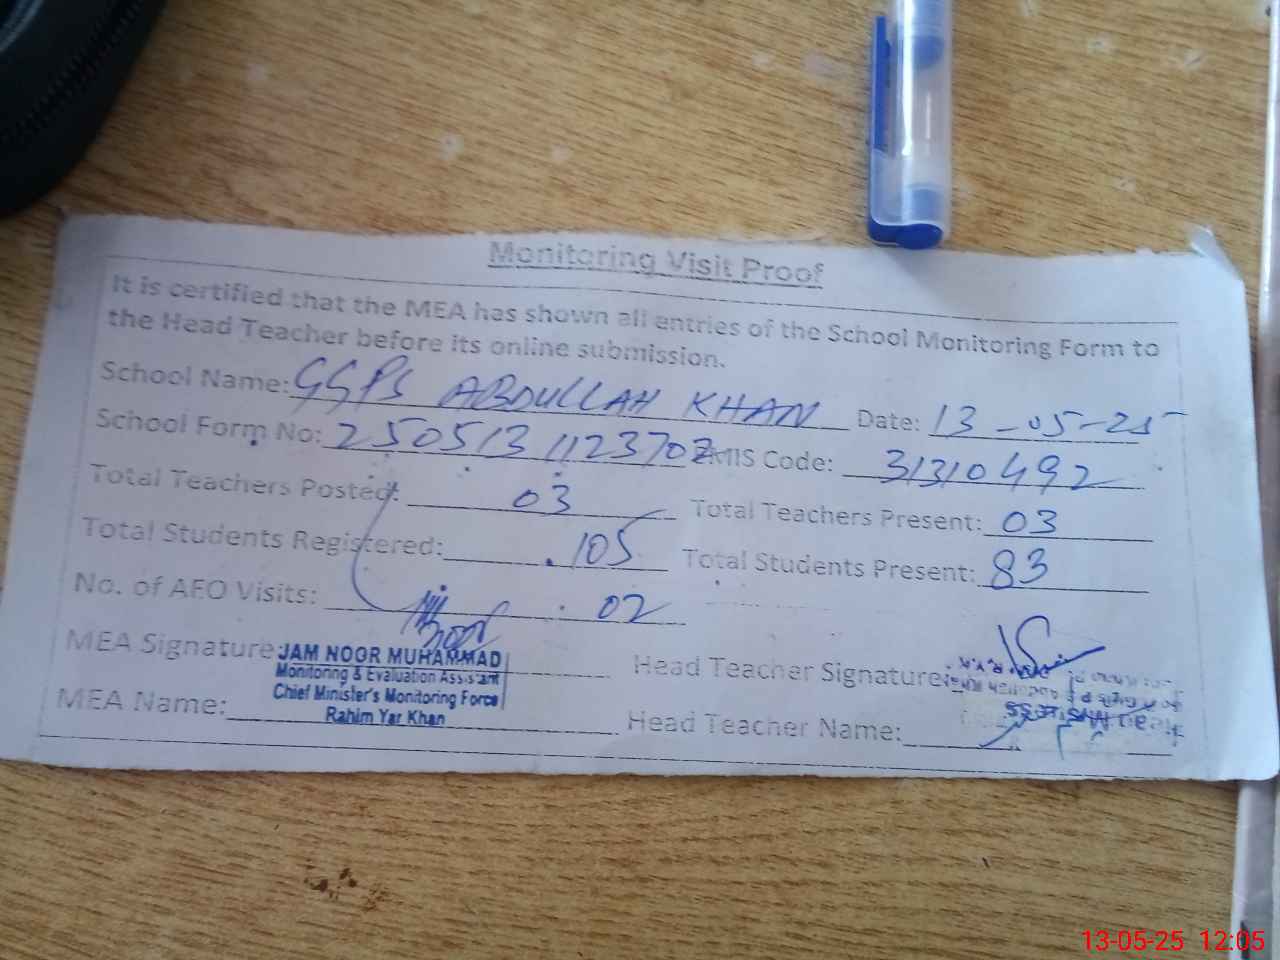 Monitoring Visit Proof
It is certified that the MEA has shown all entries of the School Monitoring Form to
the Head Teacher before its online submission.
School Name: GGPS ABDULLAH KHAN Date: 13-05-25
School Form No: 250513112370 MIS Code: 31310492
Total Teachers Posted: 03 Total Teachers Present: 03
Total Students Registered: 105 Total Students Present: 83
No. of AEO Visits: 02
MEA Signature: Head Teacher Signature:
JAM NOOR MUHAMMAD
Monitoring & Evaluation Assistant
Chief Minister's Monitoring Force
Rahim Yar Khan
MEA Name: Head Teacher Name:
13-05-25 12:05